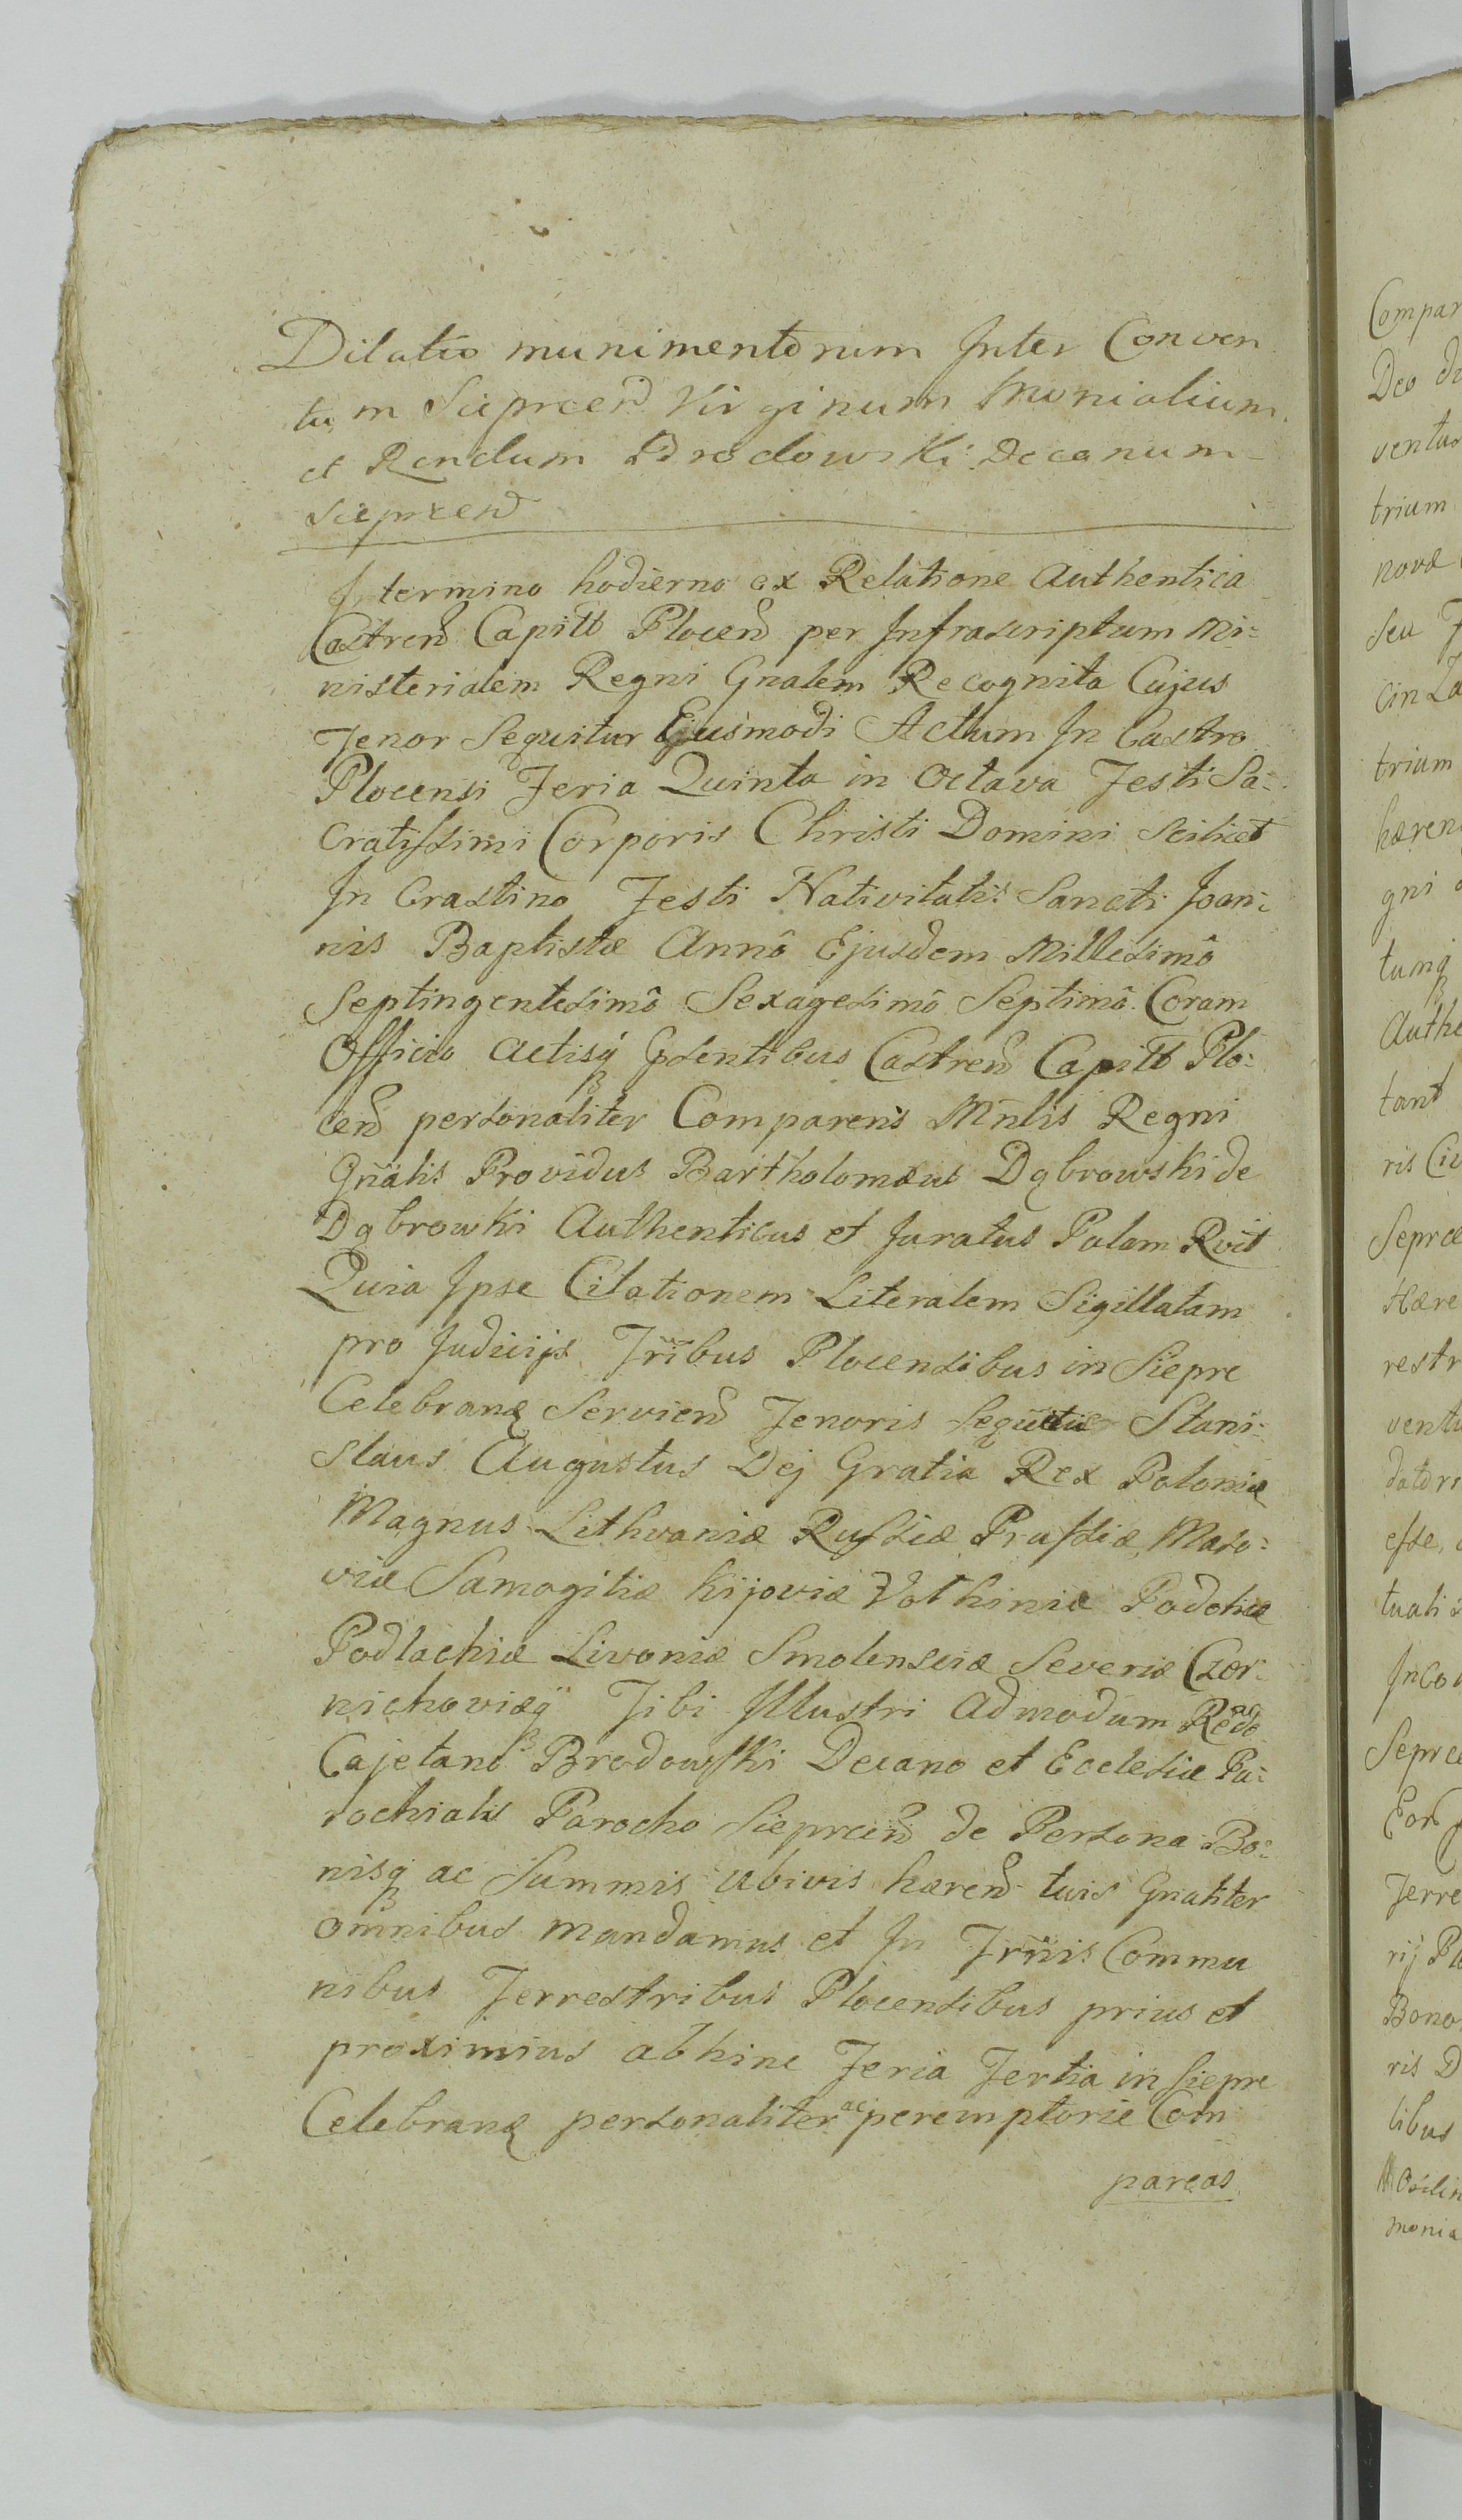 Dilatio munimentorum Inter Conven
tum Sieprcen Virginum Monialium
et Rendum Brodowski Decanum
Sieprcen
In termino hodierno ex Relatione Authentica
Castren Capitt Plocen per Infrascriptum Mi:
nisterialem Regni Gnalem Recognita Cujus
Tenor Sequitur Ejusmodi Actum In Castro
Plocensi Feria Quinta in Octava Festi Sa:
cratissimi Corporis Christi Domini scilicet
In Crastino Festi Nativitatis Sancti Joan:
nis Baptistæ Annô Ejusdem Millesimô
Septingentesimô Sexagesimô Septimô. Coram
Officio Actisq Pdentibus Castren Capitt Plo:
cen personaliter Comparens Mnlis Regni
Gnalis Providus Bartholomæus Dąbrowski de
Dąbrowki Authenticus et Juratus Palam Rvit
Quia Ipse Citationem Literalem Sigillatam
pro Judicijs Trribus Plocensibus in Siepre
Celebranq Servien Tenoris Sequtis Stani:
slaus Augustus Dej Gratia Rex Poloniæ
Magnus Lithvaniæ Russiæ Prussiæ, Maso:
viæ Samogitiæ Kijoviæ Volhiniæ Podoliæ
Podlachiæ Livoniæ Smolensciæ Severiæ Czer:
nichoviæq Tibi Illustri Admodum Rndo
Cajetano Brodowski Decano et Ecclesiæ Pa:
rochialis Parocho Sieprcen de Persona Bo:
nisq ac Summis ubivis hæren tuis Gnaliter
omnibus mandamus et In Trriis Commu
nibus Terrestribus Plocensibus prius et
proximius abhinc Feria Tertia in Siepre
Celebranq personaliter ac peremptorie Com
pareas
Compar
Deo
ventus
trium
novæ
seu
trium
hæren
gni
tumq
Authe
tant
ris
Seprce
Hære
restr
ventu
esse,
tuali
Seprce
Terre
rij Plo
Bono
ris D
libus
monia